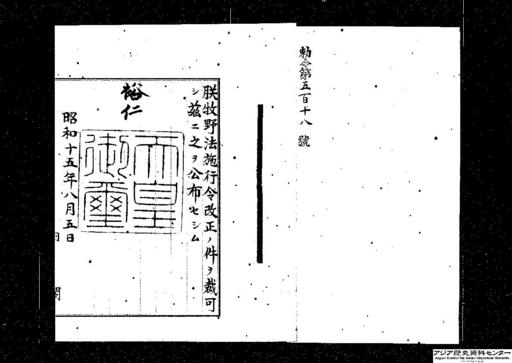 勅令第五百十八號
朕牧野法施行令改正ノ件ヲ裁可
シ茲ニ之ヲ公布セシム
裕仁
天皇
御璽
昭和十五年八月五日
アジア歴史資料センター
Japan Center for Asian Historical Records